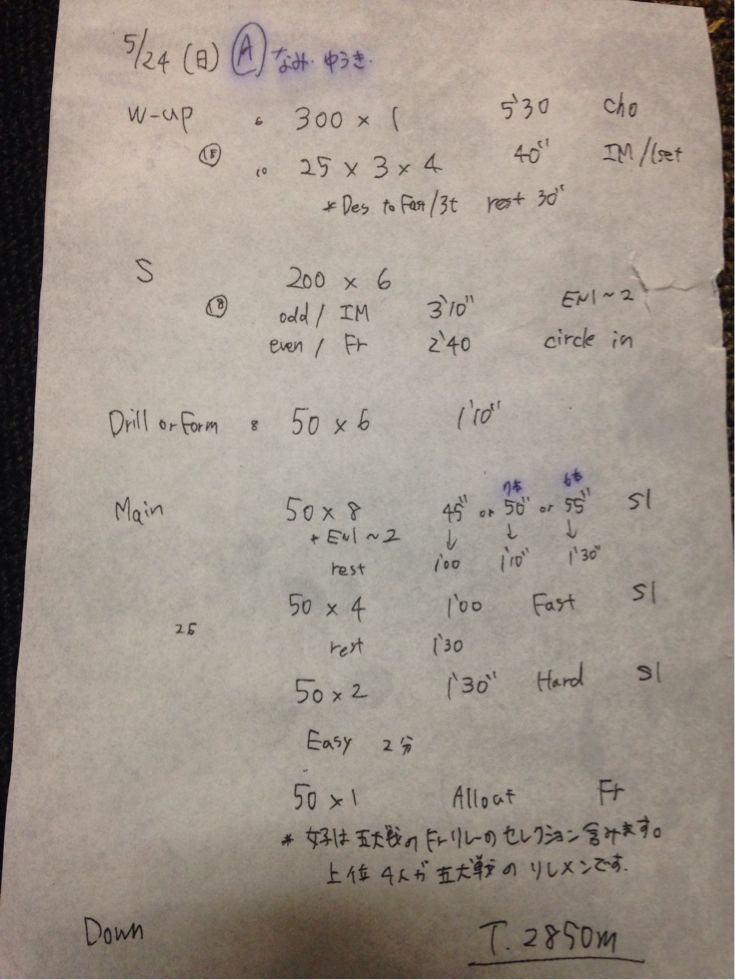 5/24 (日) Ⓐ なみ・ゆうき・
W-up 6 300 × 1 5'30 cho
⑱ 10 25 × 3 × 4 40" IM/1set
*Des to Fast/3t rest 30"
S 200 × 6
⑱ odd / IM 3'10" EN1~2
even / Fr 2'40 circle in
Drill or Form 8 50 × 6 1'10"
7本 6本
Main 50 × 8 45" or 50" or 55" S1
* EN1~2 ↓ ↓ ↓
rest 1'00 1'10" 1'30"
50 × 4 1'00 Fast S1
25 rest 1'30
50 × 2 1'30" Hard S1
Easy 2分
50 × 1 Allout Fr
* 女子は五大戦のFrリレーのセレクション含みます。
上位4人が五大戦のリレメンです.
Down T. 2850m